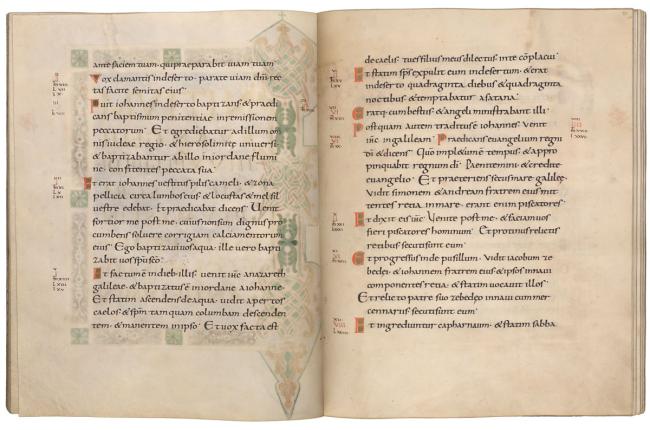 ante faciem tuam · qui praeparabit uiam tuam
Vox clamantis indeserto · parate uiam dni rec
tas facite semitas eius
Fuit iohannes indeserto baptizans & praedi
cans baptismum penitentiae inremissionem
peccatorum · Et egrediebatur adillum om
nis iudeae regio · & hierosolimite uniuersi
& baptizabantur abillo iniordane flumi
ne · confitentes peccata sua
Et erat iohannes uestitus pilis cameli · & zona
pellicia circa lumbos eius & locustas & mel sil
uestre edebat · Et praedicabat dicens Uenit
fortior me post me · cuius nonsum dignus pro
cumbens soluere corrigiam calciamentorum
eius · Ego baptizaui uos aqua · ille uero bapti
zabit uos spu sco
Et factum e indieb illis · uenit ihc anazareth
galileae · & baptizatus e iniordane aiohanne
Et statim ascendens de aqua · uidit apertos
caelos · & spm tamquam columbam descenden
tem · & manentem inipso · Et uox facta est
de caelis · tu es filius meus dilectus inte conplacui
Et statim sps expulit eum indesertum · & erat
indeserto quadraginta diebus & quadraginta
noctibus & temptabatur asatana ·
Erat q cum bestiis & angeli ministrabant illi ·
Postquam autem traditus e iohannes uenit
ihc ingalileam · Praedicans euangelium regni
di & dicens · Quo impletum e tempus · & appro
pinquabit regnum di Paenitemini & credite
euangelio · Et praeteriens secus mare galileae
Vidit simonem & andream fratrem eius mit
tentes retia inmare · erant enim piscatores
Et dixit eis ihc Venite post me · & faciam uos
fieri piscatores hominum · Et protinus relictis
retibus secuti sunt eum
Et progressus inde pusillum · Vidit iacobum ze
bedei · & iohannem fratrem eius & ipsos innaui
componentes retia · & statim uocauit illos ·
Et relicto patre suo zebedeo innaui cum mer
cennariis secuti sunt eum
Et ingrediuntur capharnaum · & statim sabba